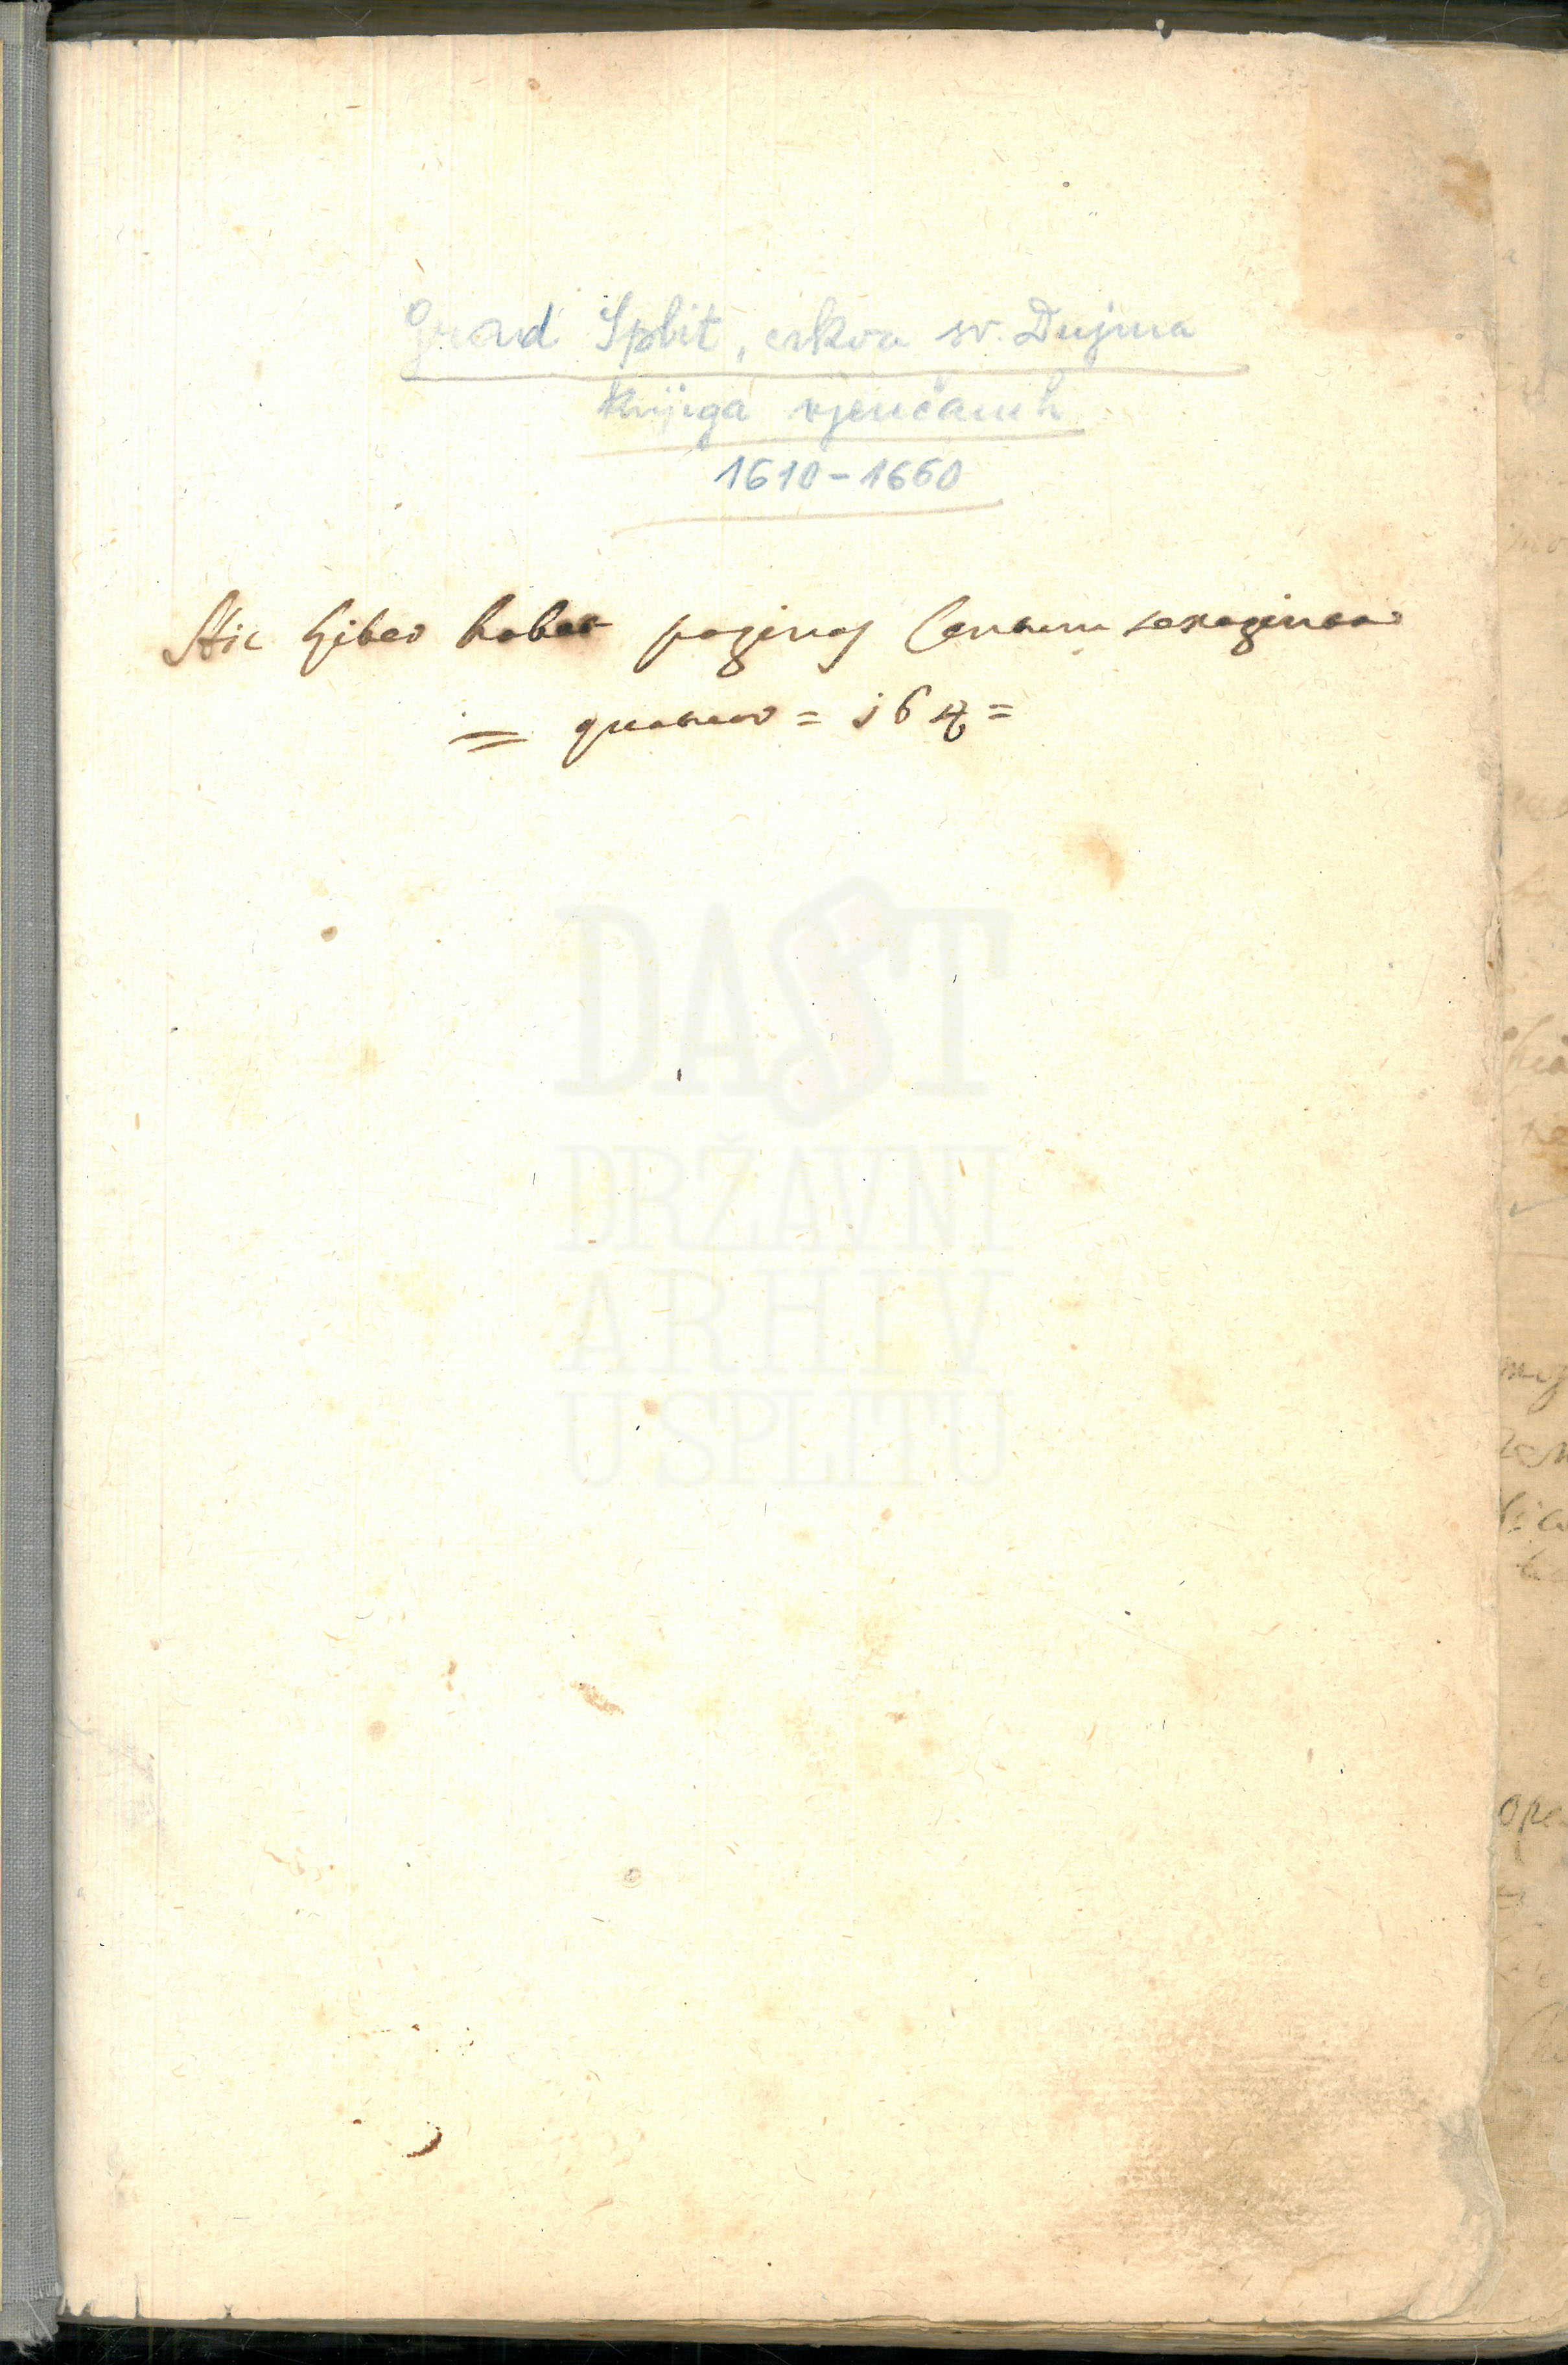 Grad Split, crkva sv. Dujma
knjiga vjenčanih
1610-1660
Hic Liber habet paginas Centum sexaginta
= quatuor = 164 =
DAST
DRŽAVNI
ARHIV
U SPLITU